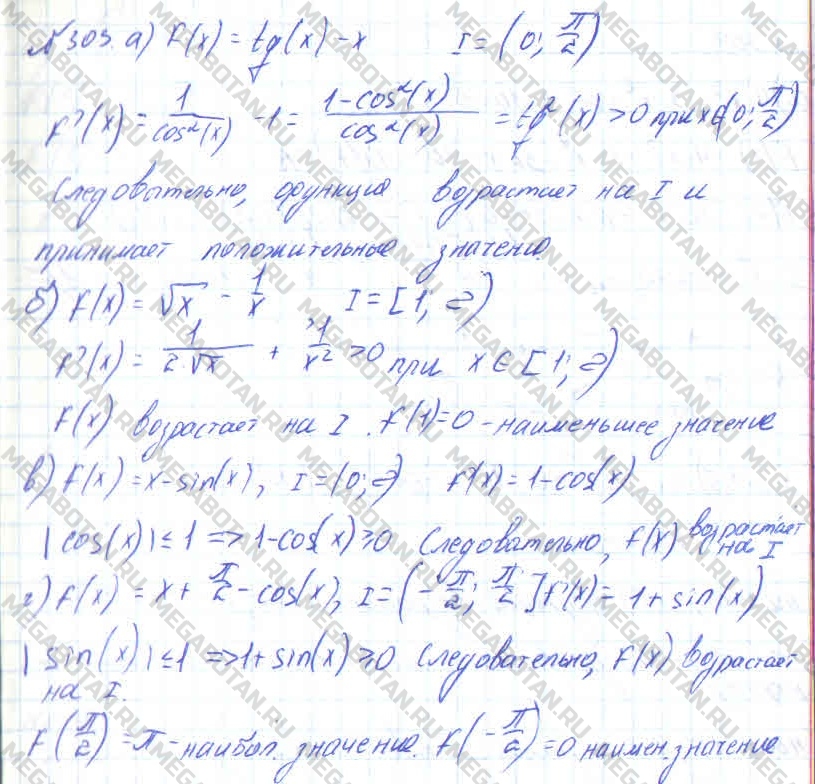 №303. а) f(x) = tg(x) - x I = (0; π/2)
f'(x) = 1/cos²(x) - 1 = (1-cos²(x))/cos²(x) = tg²(x) > 0 при x ∈ (0; π/2)
Следовательно, функция возрастает на I и
принимает положительные значения.
б) f(x) = √x - 1/x I = [1; ∞)
f'(x) = 1/(2·√x) + 1/x² > 0 при x ∈ [1; ∞)
f(x) возрастает на I. f(1)=0 - наименьшее значение
в) f(x) = x - sin(x), I = (0; ∞) f'(x) = 1-cos(x)
|cos(x)| ≤ 1 => 1-cos(x) ≥ 0 Следовательно, f(x) возрастает на I
г) f(x) = x + π/2 - cos(x), I = (-π/2; π/2] f'(x) = 1 + sin(x)
|sin(x)| ≤ 1 => 1+sin(x) ≥ 0 Следовательно, f(x) возрастает
на I.
f(π/2) = π - наибол. значение. f(-π/2) = 0 наимен. значение
MEGABOTAN.RU